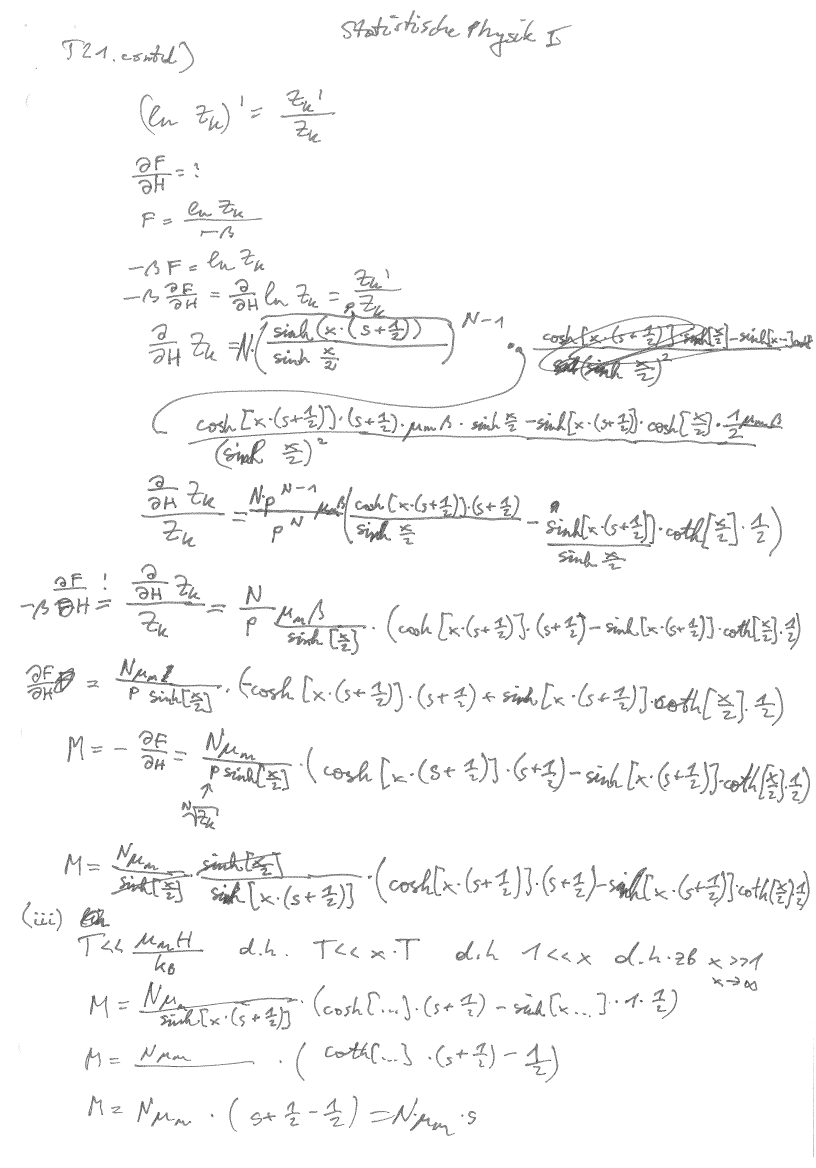 Statistische Physik II
T21. contd)
(ln Z_k)' = Z_k' / Z_k
∂F/∂H = ?
F = ln Z_k / -β
-βF = ln Z_k
-β ∂F/∂H = ∂/∂H ln Z_k = Z_k' / Z_k
∂/∂H Z_k = N·(sinh(x·(s+1/2)) / sinh x/2)^(N-1) ·
(cosh[x·(s+1/2)]·(s+1/2)·μ_m β · sinh x/2 - sinh[x·(s+1/2)]·cosh[x/2]·1/2 μ_m β) / (sinh x/2)^2
(∂/∂H Z_k) / Z_k = N·p^(N-1) / p^N μ_m β (cosh[x·(s+1/2)]·(s+1/2) / sinh x/2 - sinh[x·(s+1/2)] / sinh x/2 ·coth[x/2]·1/2)
-β ∂F/∂H =! (∂/∂H Z_k) / Z_k = N/p μ_m β / sinh[x/2] · (cosh[x·(s+1/2)]·(s+1/2) - sinh[x·(s+1/2)]·coth[x/2]·1/2)
∂F/∂H = N μ_m 1 / p sinh[x/2] · (-cosh[x·(s+1/2)]·(s+1/2) + sinh[x·(s+1/2)]·coth[x/2]·1/2)
M = - ∂F/∂H = N μ_m / p sinh[x/2] · (cosh[x·(s+1/2)]·(s+1/2) - sinh[x·(s+1/2)]·coth[x/2]·1/2)
↑
N√Z_k
M = N μ_m / sinh[x/2] · sinh[x/2] / sinh[x·(s+1/2)] · (cosh[x·(s+1/2)]·(s+1/2) - sinh[x·(s+1/2)]·coth[x/2]·1/2)
(iii)
T << μ_m H / k_B d.h. T << x·T d.h 1 << x d.h. zB x >> 1
x→∞
M = N μ_m / sinh[x·(s+1/2)] · (cosh[...]·(s+1/2) - sinh[x...]·1·1/2)
M = N μ_m · (coth[...]·(s+1/2) - 1/2)
M = N μ_m · (s+1/2-1/2) = N·μ_m·s